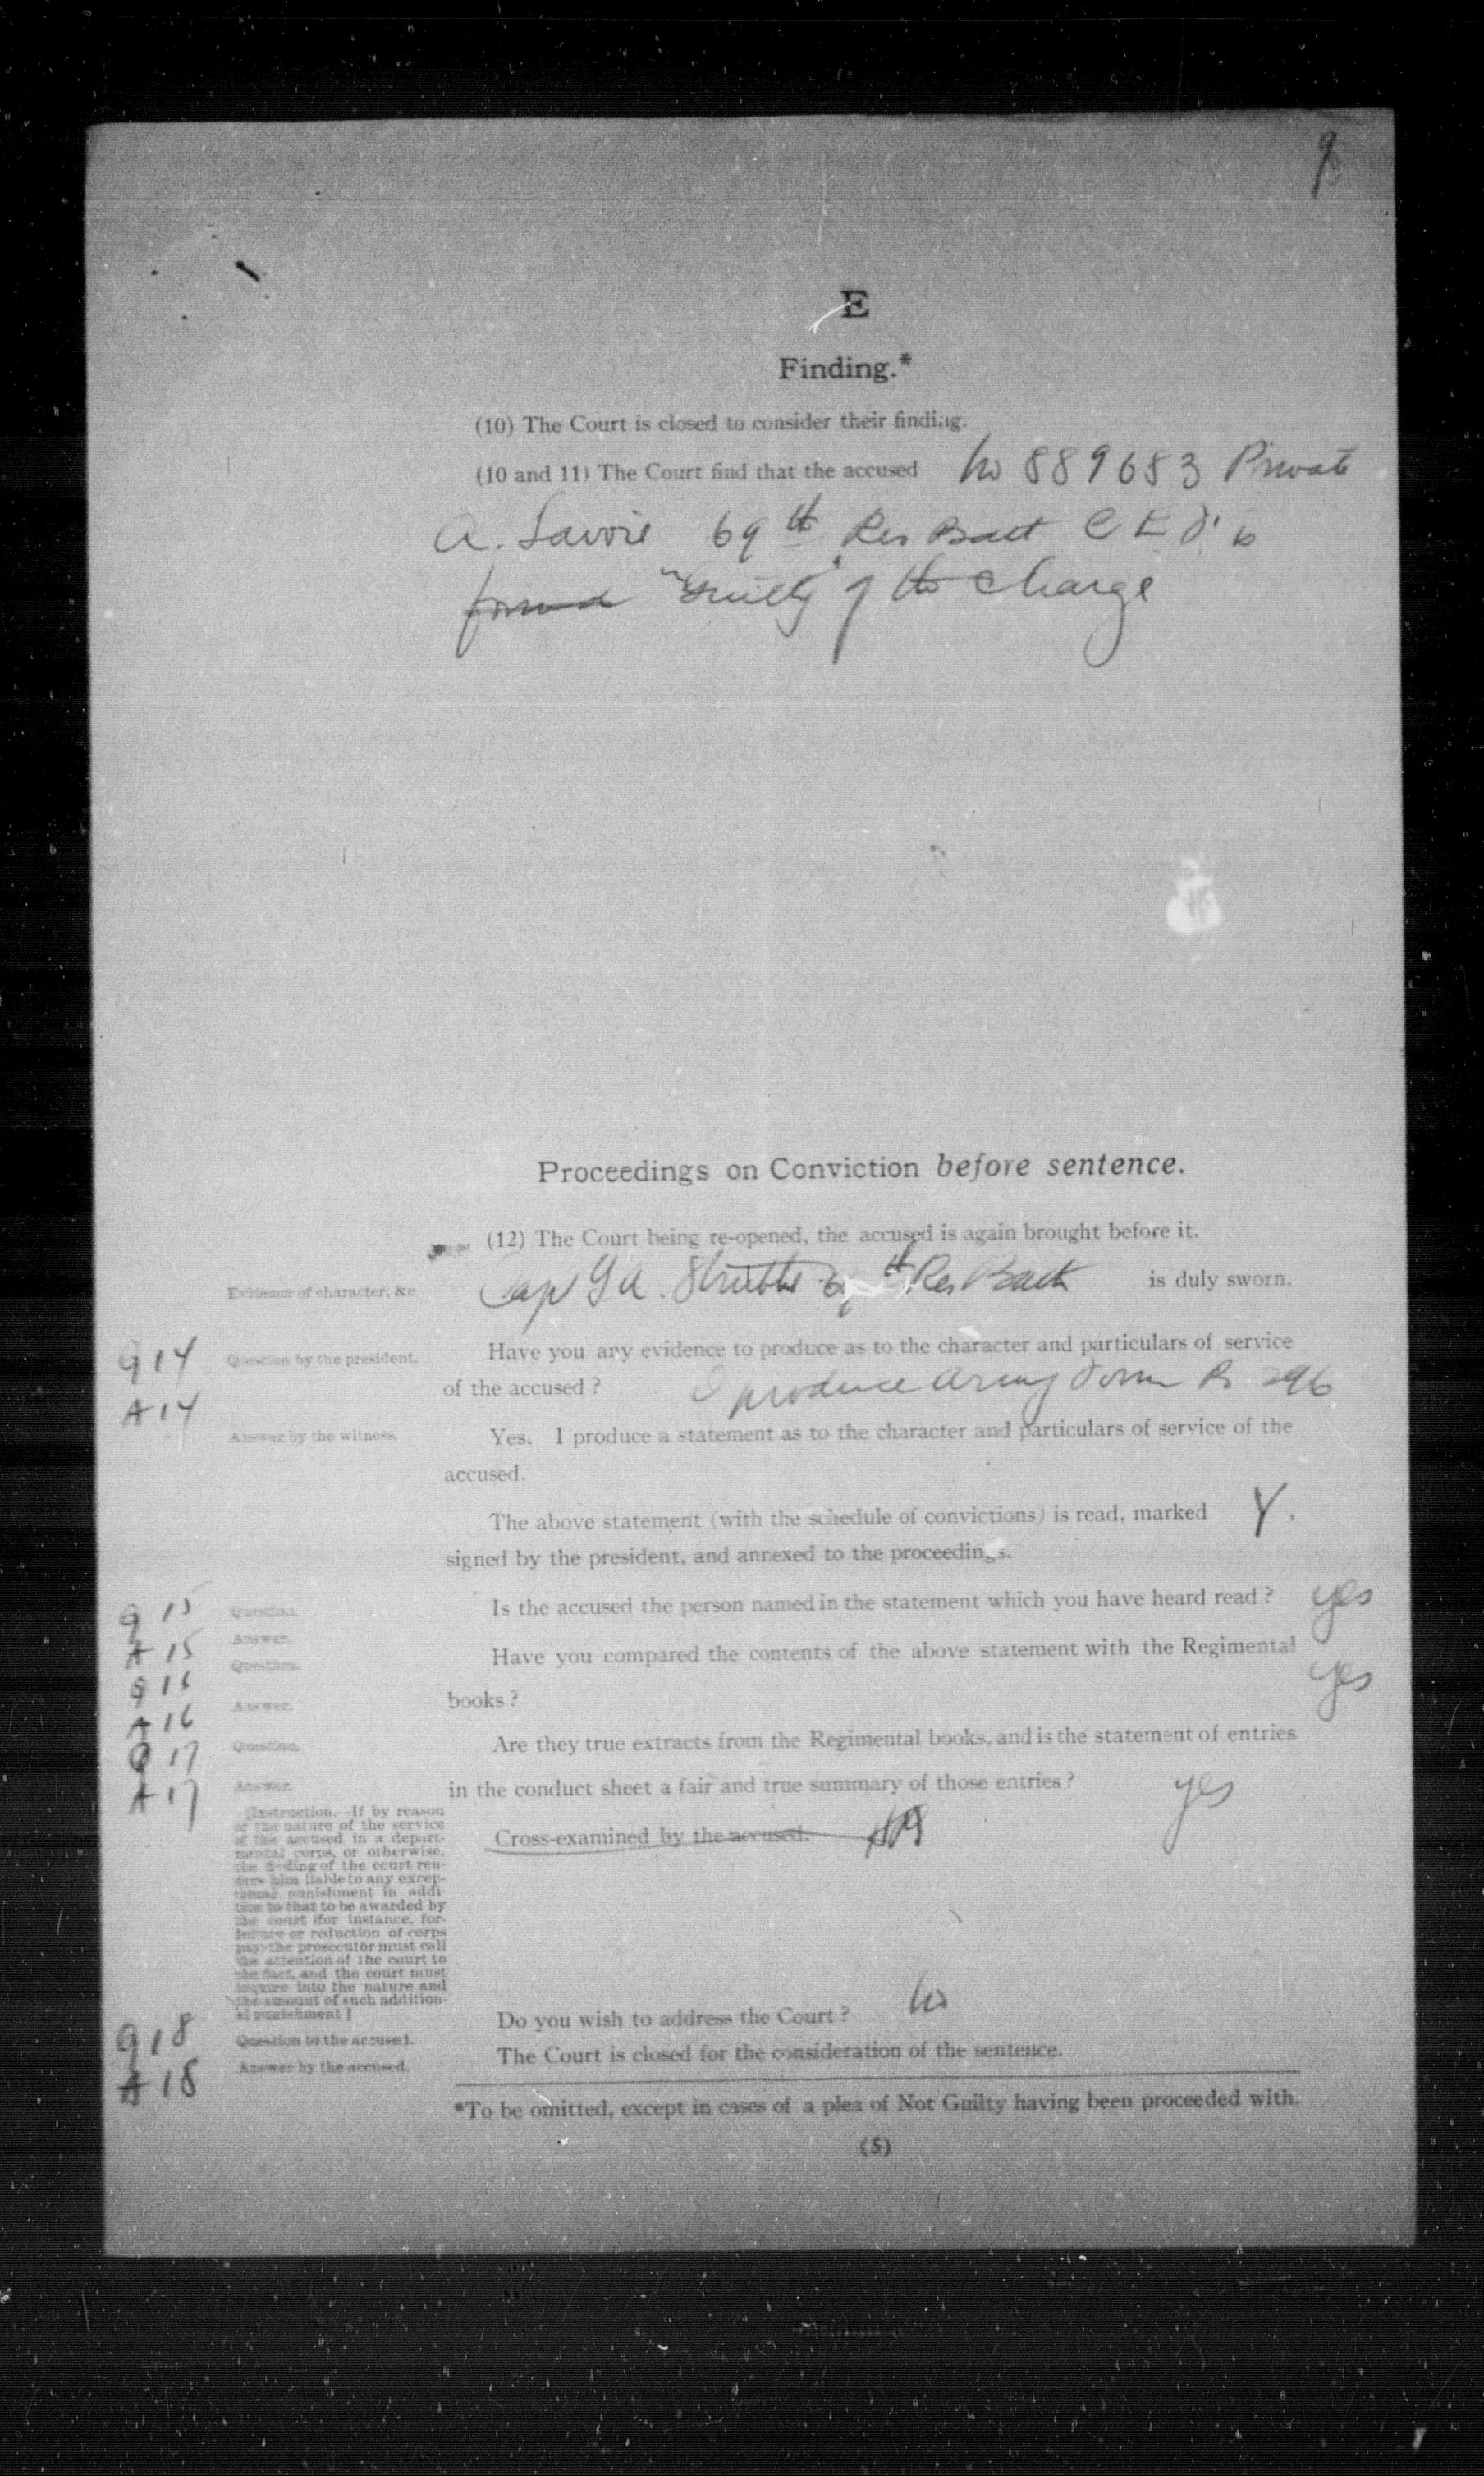 9
E
Finding.*
(10) The Court is closed to consider their finding.
(10 and 11) The Court find that the accused No 889683 Private
A. Savoie 69th Res Batt C E F. is
found "Guilty" of the charge
Proceedings on Conviction before sentence.
(12) The Court being re-opened, the accused is again brought before it.
Evidence of character, &c. Capt G A. 69th Res Batt is duly sworn.
Q14 Question by the president. Have you any evidence to produce as to the character and particulars of service
of the accused? I produce Army Form B. 296
A14
Answer by the witness. Yes. I produce a statement as to the character and particulars of service of the
accused.
The above statement (with the schedule of convictions) is read, marked Y.
signed by the president, and annexed to the proceedings.
Q15 Question. Is the accused the person named in the statement which you have heard read? yes
A15 Answer.
Q16 Question. Have you compared the contents of the above statement with the Regimental
books? yes
A16 Answer.
Q17 Question. Are they true extracts from the Regimental books, and is the statement of entries
A17 Answer. in the conduct sheet a fair and true summary of those entries? yes
Cross-examined by the accused.
[Instruction.—If by reason
of the nature of the service
of the accused in a depart-
mental corps, or otherwise,
the finding of the court ren-
ders him liable to any excep-
tional punishment in addi-
tion to that to be awarded by
the court (for instance, for-
feiture or reduction of corps
pay) the prosecutor must call
the attention of the court to
the fact, and the court must
inquire into the nature and
the amount of such addition-
al punishment]
Q18 Question to the accused. Do you wish to address the Court? No
A18 Answer by the accused. The Court is closed for the consideration of the sentence.
*To be omitted, except in cases of a plea of Not Guilty having been proceeded with.
(5)